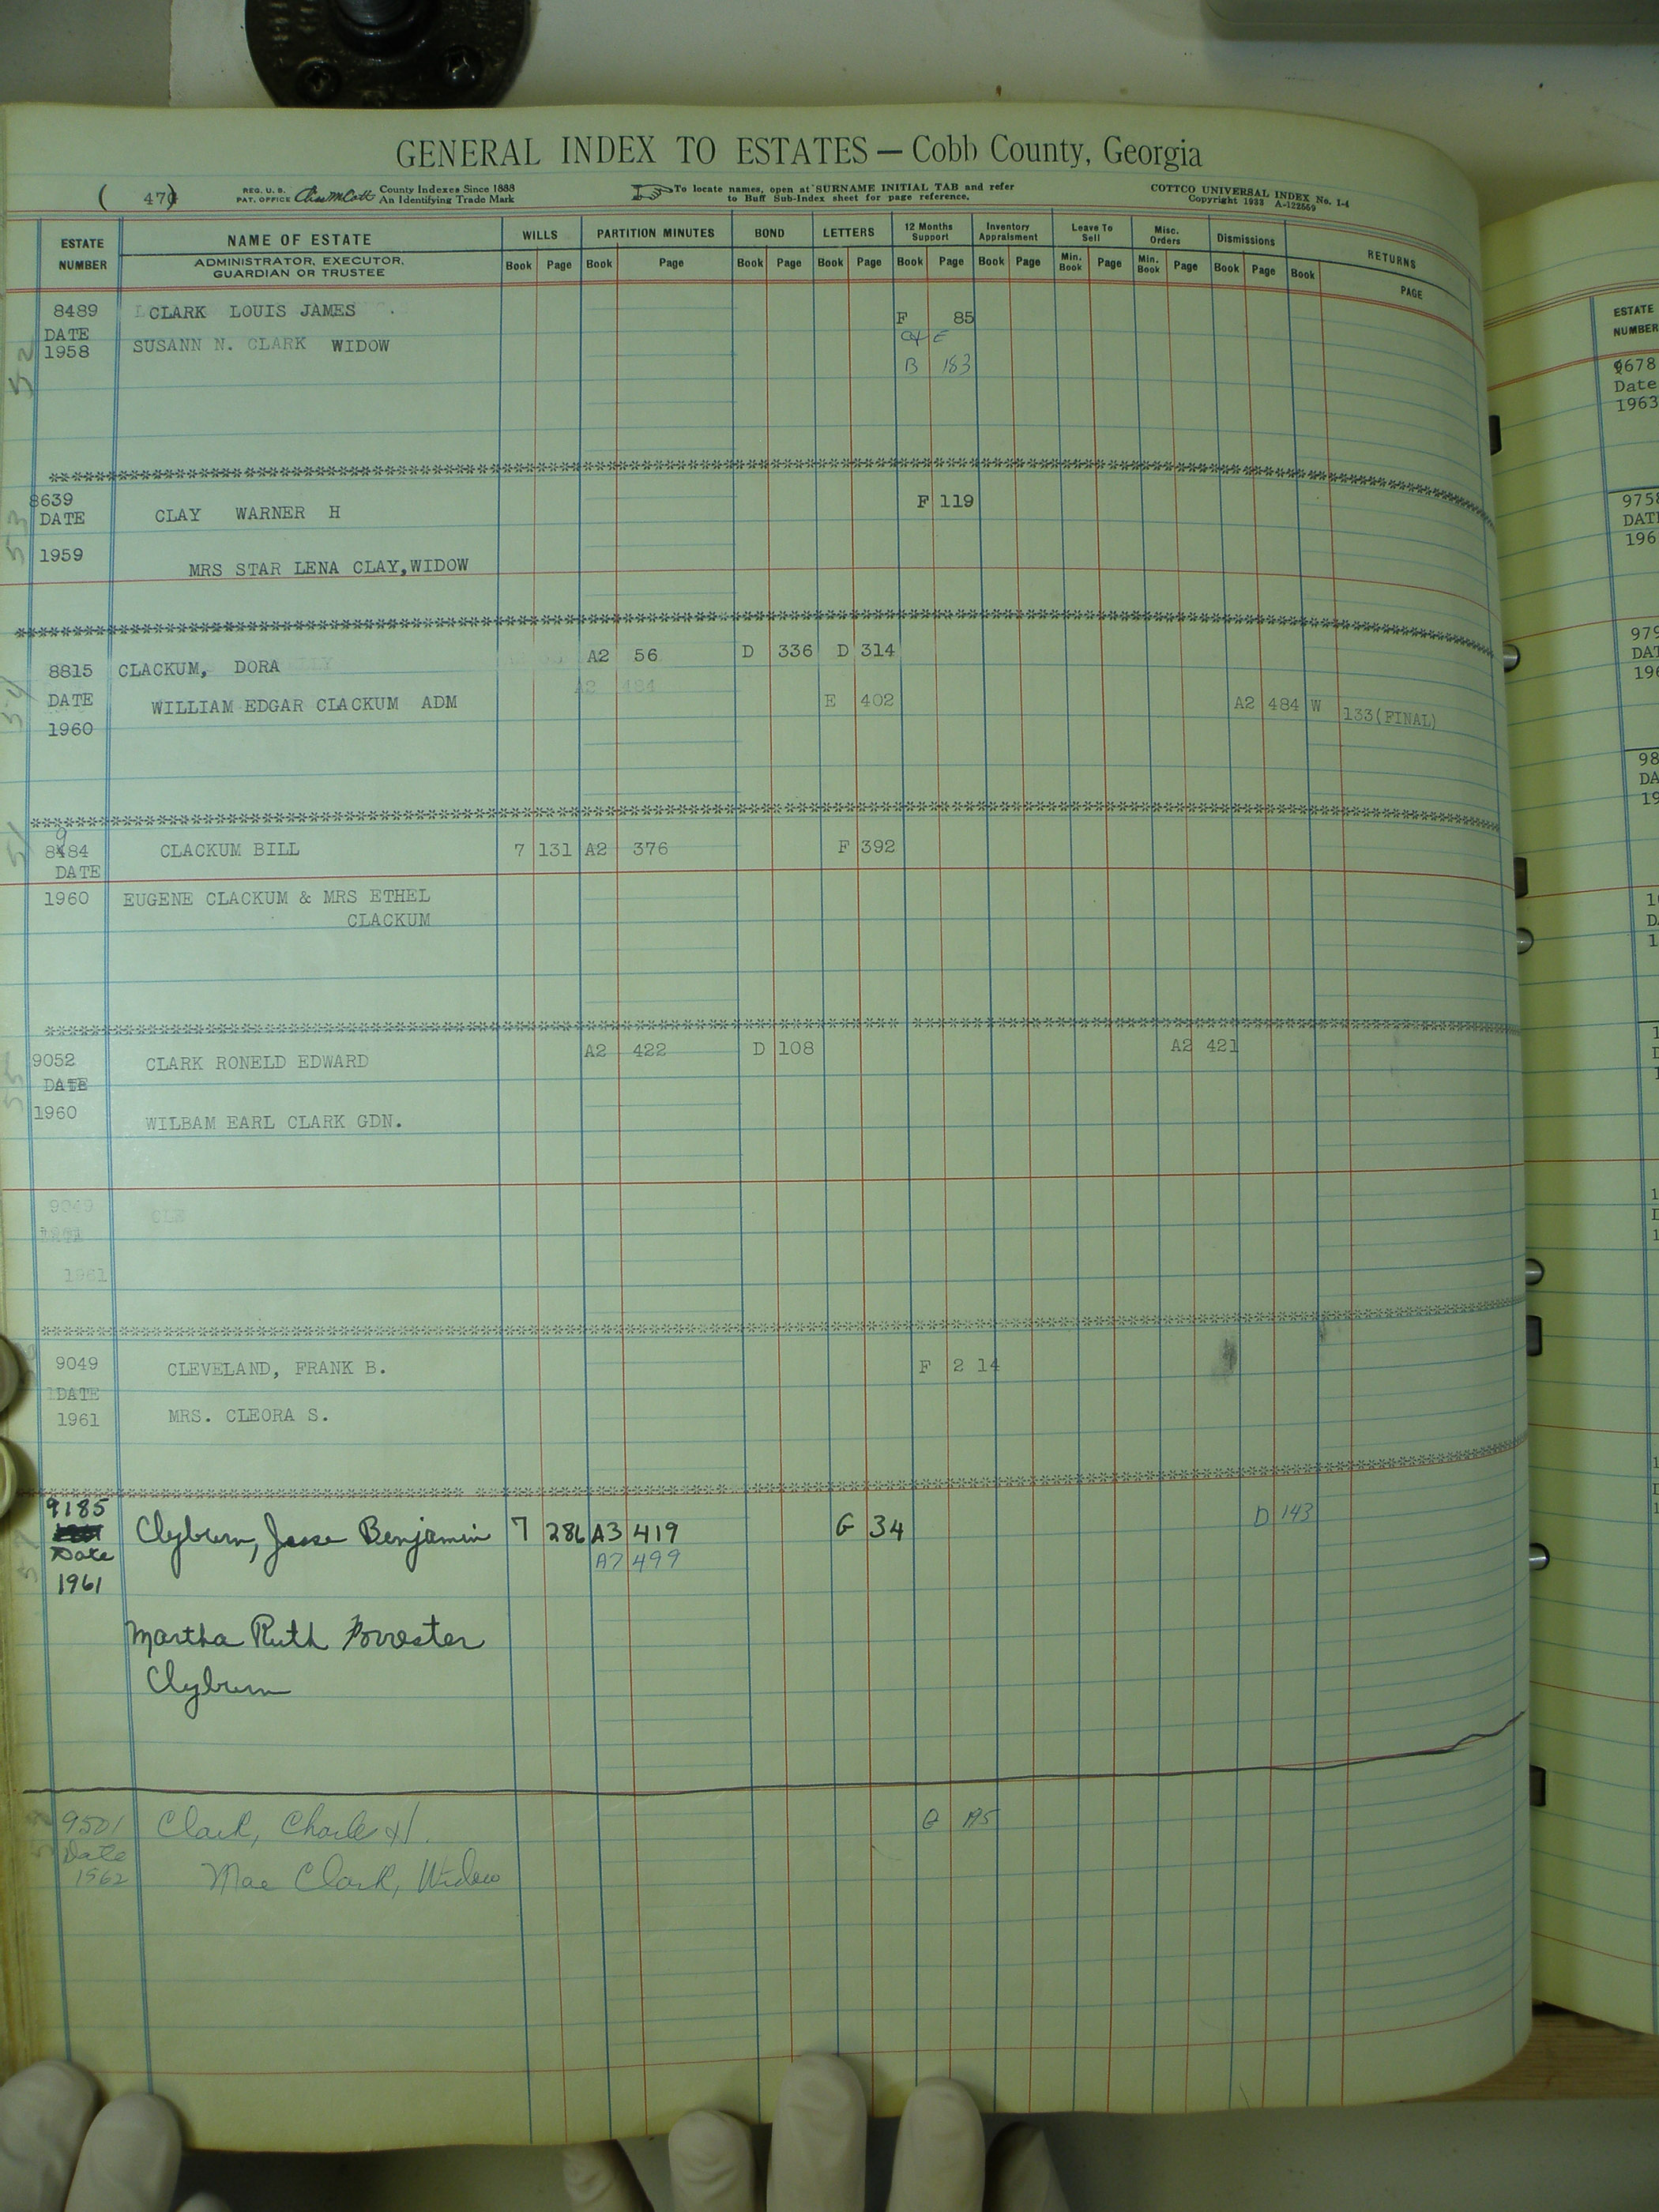 GENERAL INDEX TO ESTATES — Cobb County, Georgia
( 470) REG. U. S. PAT. OFFICE County Indexes Since 1888 An Identifying Trade Mark To locate names, open at SURNAME INITIAL TAB and refer to Buff Sub-Index sheet for page reference. COTTCO UNIVERSAL INDEX No. 1-4 Copyright 1933 A-122559
ESTATE NUMBER NAME OF ESTATE WILLS PARTITION MINUTES BOND LETTERS 12 Months Support Inventory Appraisment Leave To Sell Misc. Orders Dismissions RETURNS
ADMINISTRATOR, EXECUTOR, GUARDIAN OR TRUSTEE Book Page Book Page Book Page Book Page Book Page Book Page Min. Book Page Min. Book Page Book Page Book PAGE
8489 CLARK LOUIS JAMES F 85
DATE
1958 SUSANN N. CLARK WIDOW
B 183
52
8639 CLAY WARNER H F 119
DATE
53
1959 MRS STAR LENA CLAY, WIDOW
8815 CLACKUM, DORA A2 56 D 336 D 314
A2 484
DATE WILLIAM EDGAR CLACKUM ADM E 402 A2 484 W 133(FINAL)
54
1960
9
8484 CLACKUM BILL 7 131 A2 376 F 392
DATE
1960 EUGENE CLACKUM & MRS ETHEL
CLACKUM
9052 CLARK RONELD EDWARD A2 422 D 108 A2 421
DATE
55
1960 WILBAM EARL CLARK GDN.
9049 CLE
1961
9049 CLEVELAND, FRANK B. F 2 14
DATE
1961 MRS. CLEORA S.
9185 Clyburn, Jesse Benjamin 7 286 A3 419 G 34 D 143
Date A7 499
57
1961
Martha Ruth Forrester
Clyburn
9501 Clark, Charle H. G
Date
1962 Mae Clark, Widow
ESTATE
NUMBER
9678
Date
1963
9758
DAT
196
979
DAT
196
98
DA
19